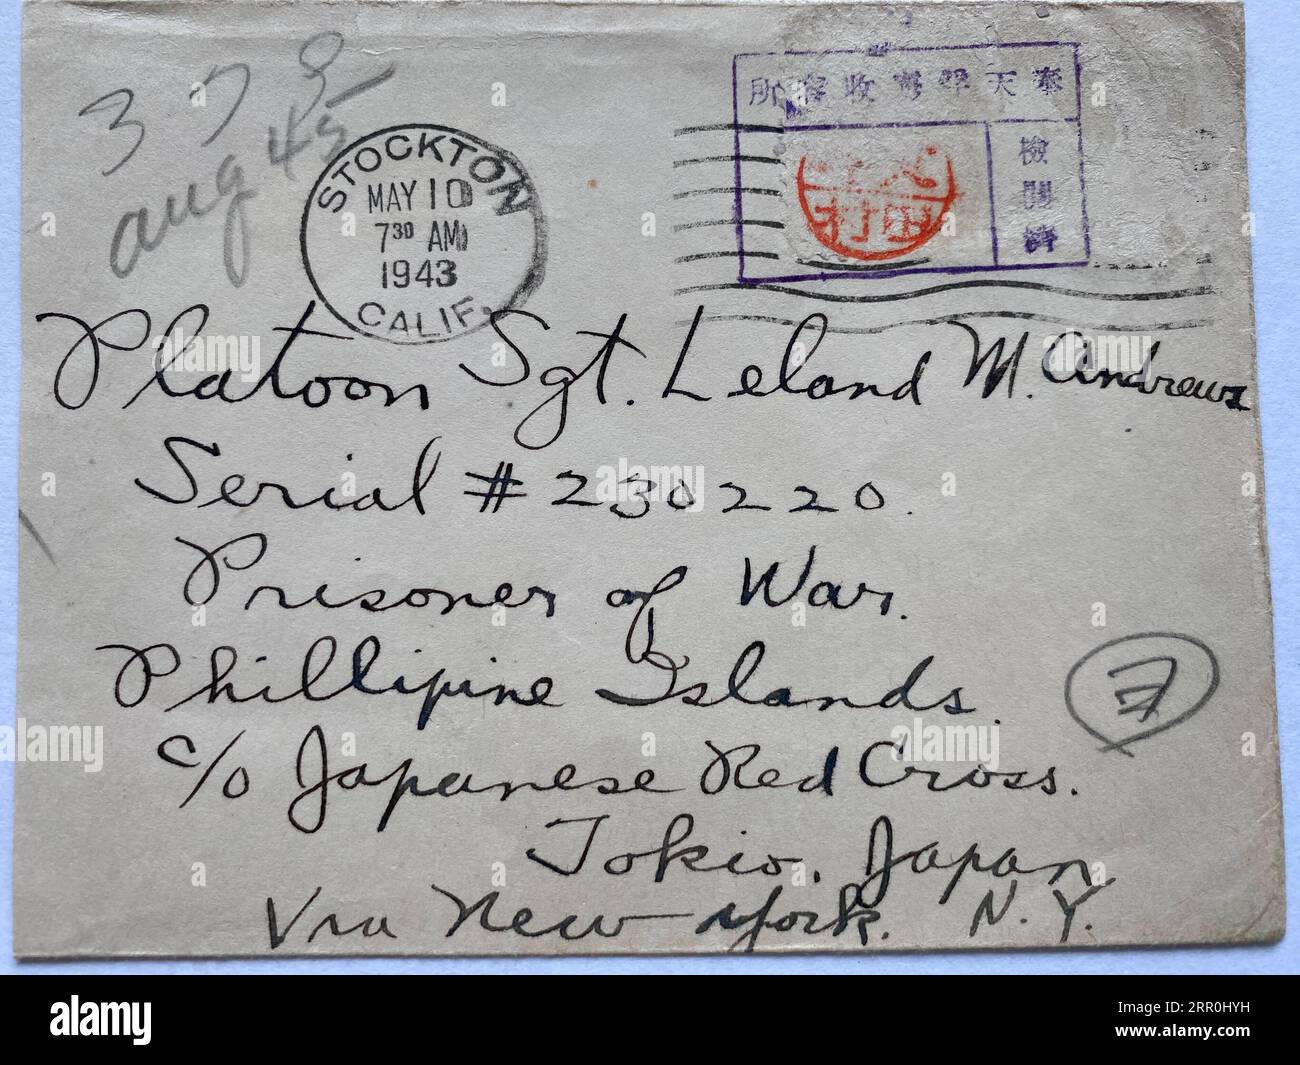 3 7 8
aug 45
STOCKTON
MAY 10
7 30 AM
1943
CALIF.
奉天俘虜収容所
檢閲濟
Platoon Sgt. Leland M. Andrews
Serial # 230220.
Prisoner of War.
Phillipine Islands.
c/o Japanese Red Cross.
Tokio, Japan
Via New York. N.Y.
alamy
Image ID: 2RR0HYH
www.alamy.com